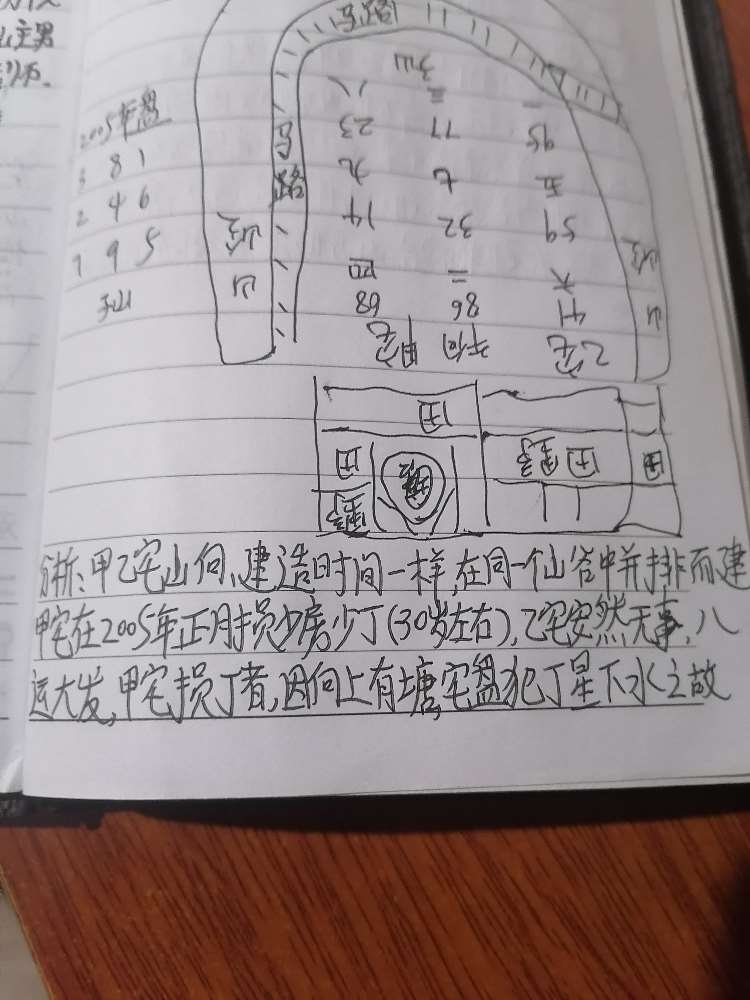 主男
马路
子山
八 三 一
23 77 95
九 七 五
马路
14 32 59
四 二 六
68 86 41
甲宅 午向 乙宅
2005年盘
3 8 1
2 4 6
7 9 5
子山
山
山
田
田 田 田
分析:甲乙宅山向、建造时间一样,在同一个山谷中并排而建
甲宅在2005年正月损少房少丁(30岁左右),乙宅安然无事,八
运大发,甲宅损丁者,因向上有塘,宅盘犯丁星下水之故